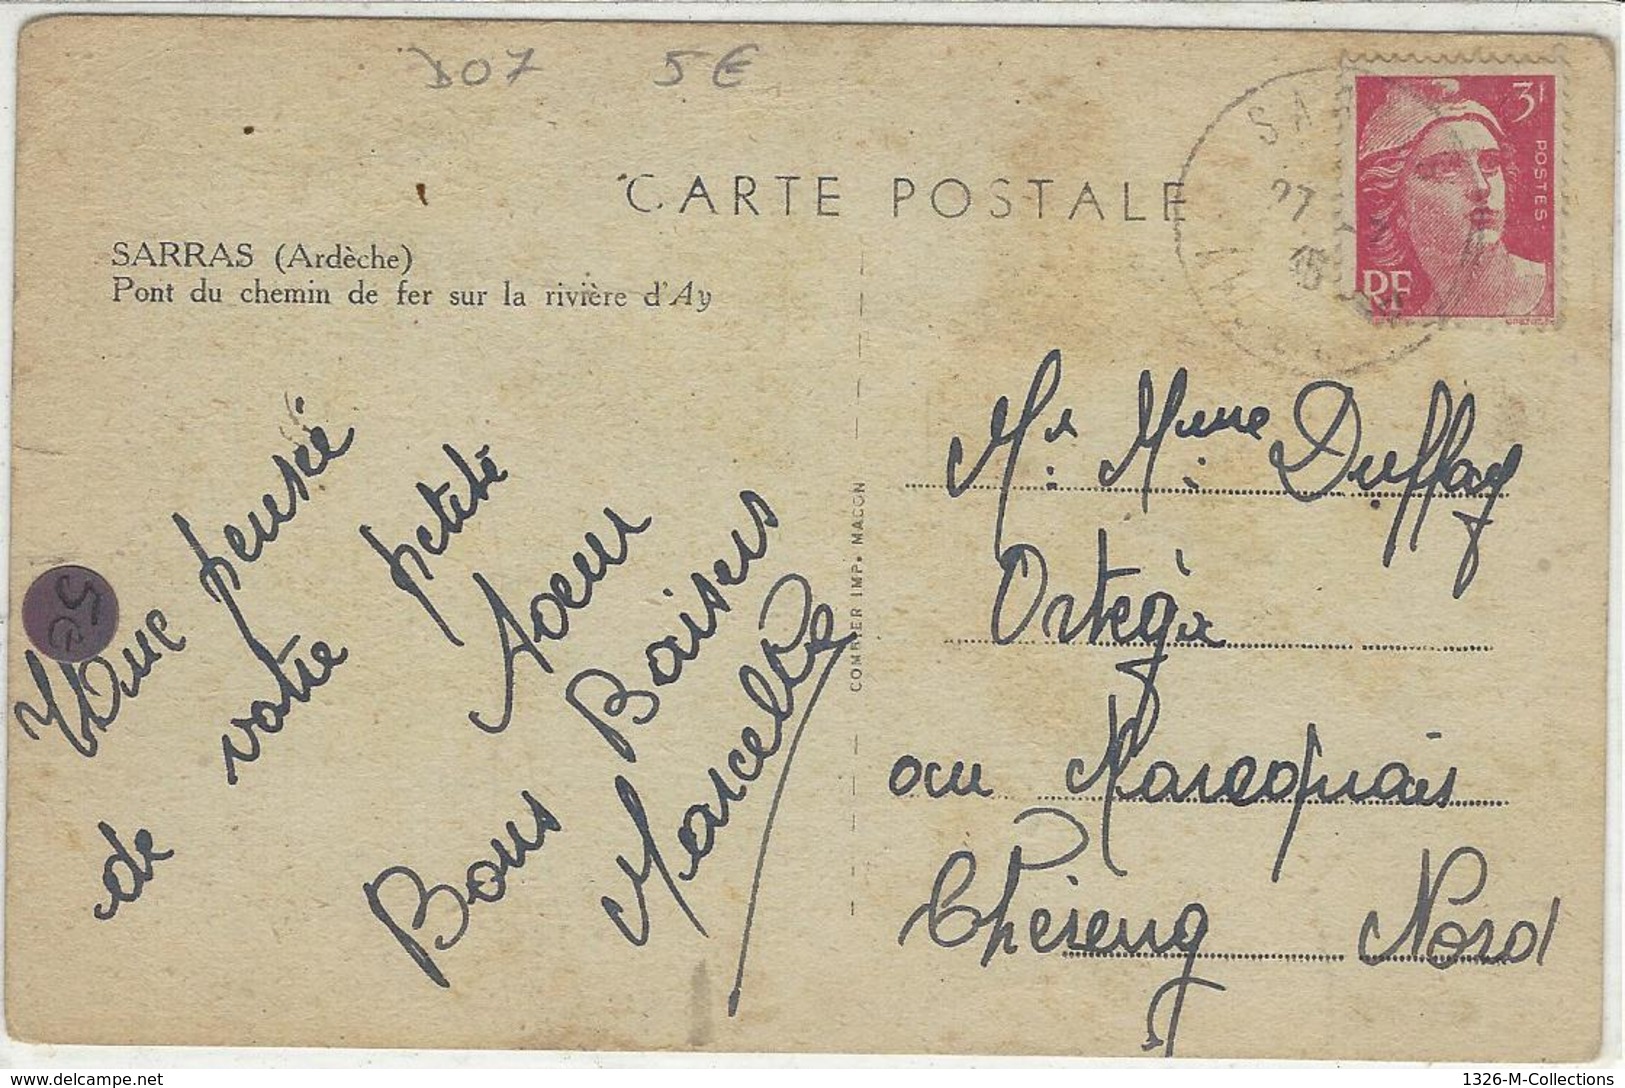 D07 5€
CARTE POSTALE
SARRAS (Ardèche)
Pont du chemin de fer sur la rivière d'Ay
3F
POSTES
RF
SAR
27
Une pensée
de votre petite
Soeur
Bons Baisers
Marcelle
COMBIER IMP. MACON
Mr. Mme Duffay
Ortega
au
Nord
5€
1326-M-Collections